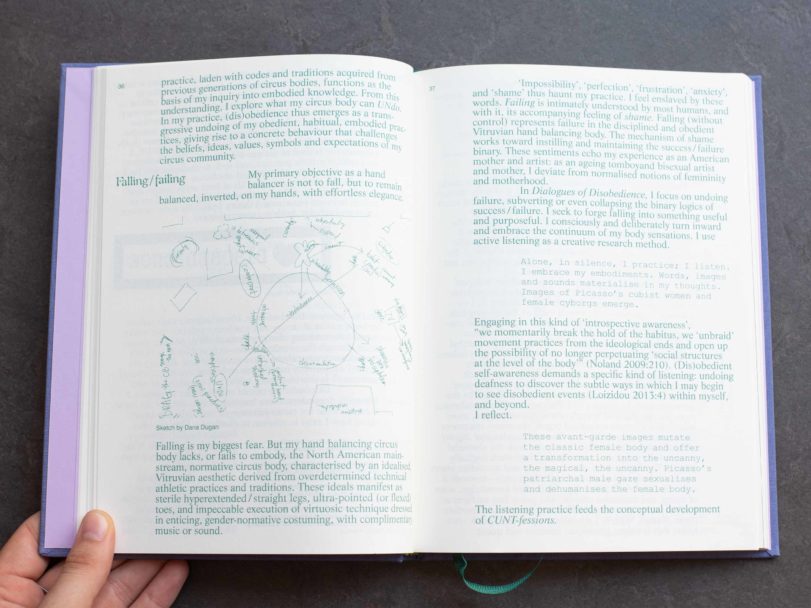 36
practice, laden with codes and traditions acquired from
previous generations of circus bodies, functions as the
basis of my inquiry into embodied knowledge. From this
understanding, I explore what my circus body can UNdo.
In my practice, (dis)obedience thus emerges as a trans-
gressive undoing of my obedient, habitual, embodied prac-
tices, giving rise to a concrete behaviour that challenges
the beliefs, ideas, values, symbols and expectations of my
circus community.
Falling/failing
My primary objective as a hand
balancer is not to fall, but to remain
balanced, inverted, on my hands, with effortless elegance.
Sketch by Dana Dugan
Falling is my biggest fear. But my hand balancing circus
body lacks, or fails to embody, the North American main-
stream, normative circus body, characterised by an idealised
Vitruvian aesthetic derived from overdetermined technical
athletic practices and traditions. These ideals manifest as
sterile hyperextended/straight legs, ultra-pointed (or flexed)
toes, and impeccable execution of virtuosic technique dressed
in enticing, gender-normative costuming, with complimentary
music or sound.
37
‘Impossibility’, ‘perfection’, ‘frustration’, ‘anxiety’,
and ‘shame’ thus haunt my practice. I feel enslaved by these
words. Failing is intimately understood by most humans, and
with it, its accompanying feeling of shame. Falling (without
control) represents failure in the disciplined and obedient
Vitruvian hand balancing body. The mechanism of shame
works toward instilling and maintaining the success/failure
binary. These sentiments echo my experience as an American
mother and artist: as an ageing tomboyand bisexual artist
and mother, I deviate from normalised notions of femininity
and motherhood.
In Dialogues of Disobedience, I focus on undoing
failure, subverting or even collapsing the binary logics of
success/failure. I seek to forge falling into something useful
and purposeful. I consciously and deliberately turn inward
and embrace the continuum of my body sensations. I use
active listening as a creative research method.
Alone, in silence, I practice; I listen.
I embrace my embodiments. Words, images
and sounds materialise in my thoughts.
Images of Picasso’s cubist women and
female cyborgs emerge.
Engaging in this kind of ‘introspective awareness’,
“we momentarily break the hold of the habitus, we ‘unbraid’
movement practices from the ideological ends and open up
the possibility of no longer perpetuating ‘social structures
at the level of the body’” (Noland 2009:210). (Dis)obedient
self-awareness demands a specific kind of listening: undoing
deafness to discover the subtle ways in which I may begin
to see disobedient events (Loizidou 2013:4) within myself,
and beyond.
I reflect.
These avant-garde images mutate
the classic female body and offer
a transformation into the uncanny,
the magical, the uncanny. Picasso’s
patriarchal male gaze sexualises
and dehumanises the female body.
The listening practice feeds the conceptual development
of CUNT-fessions.